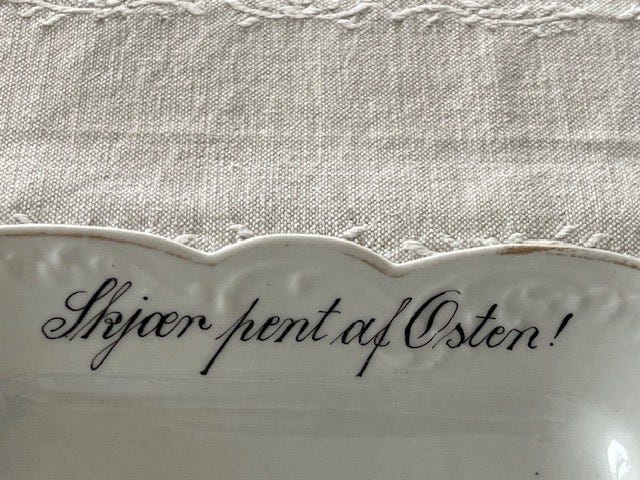 Skjær pent af Osten!